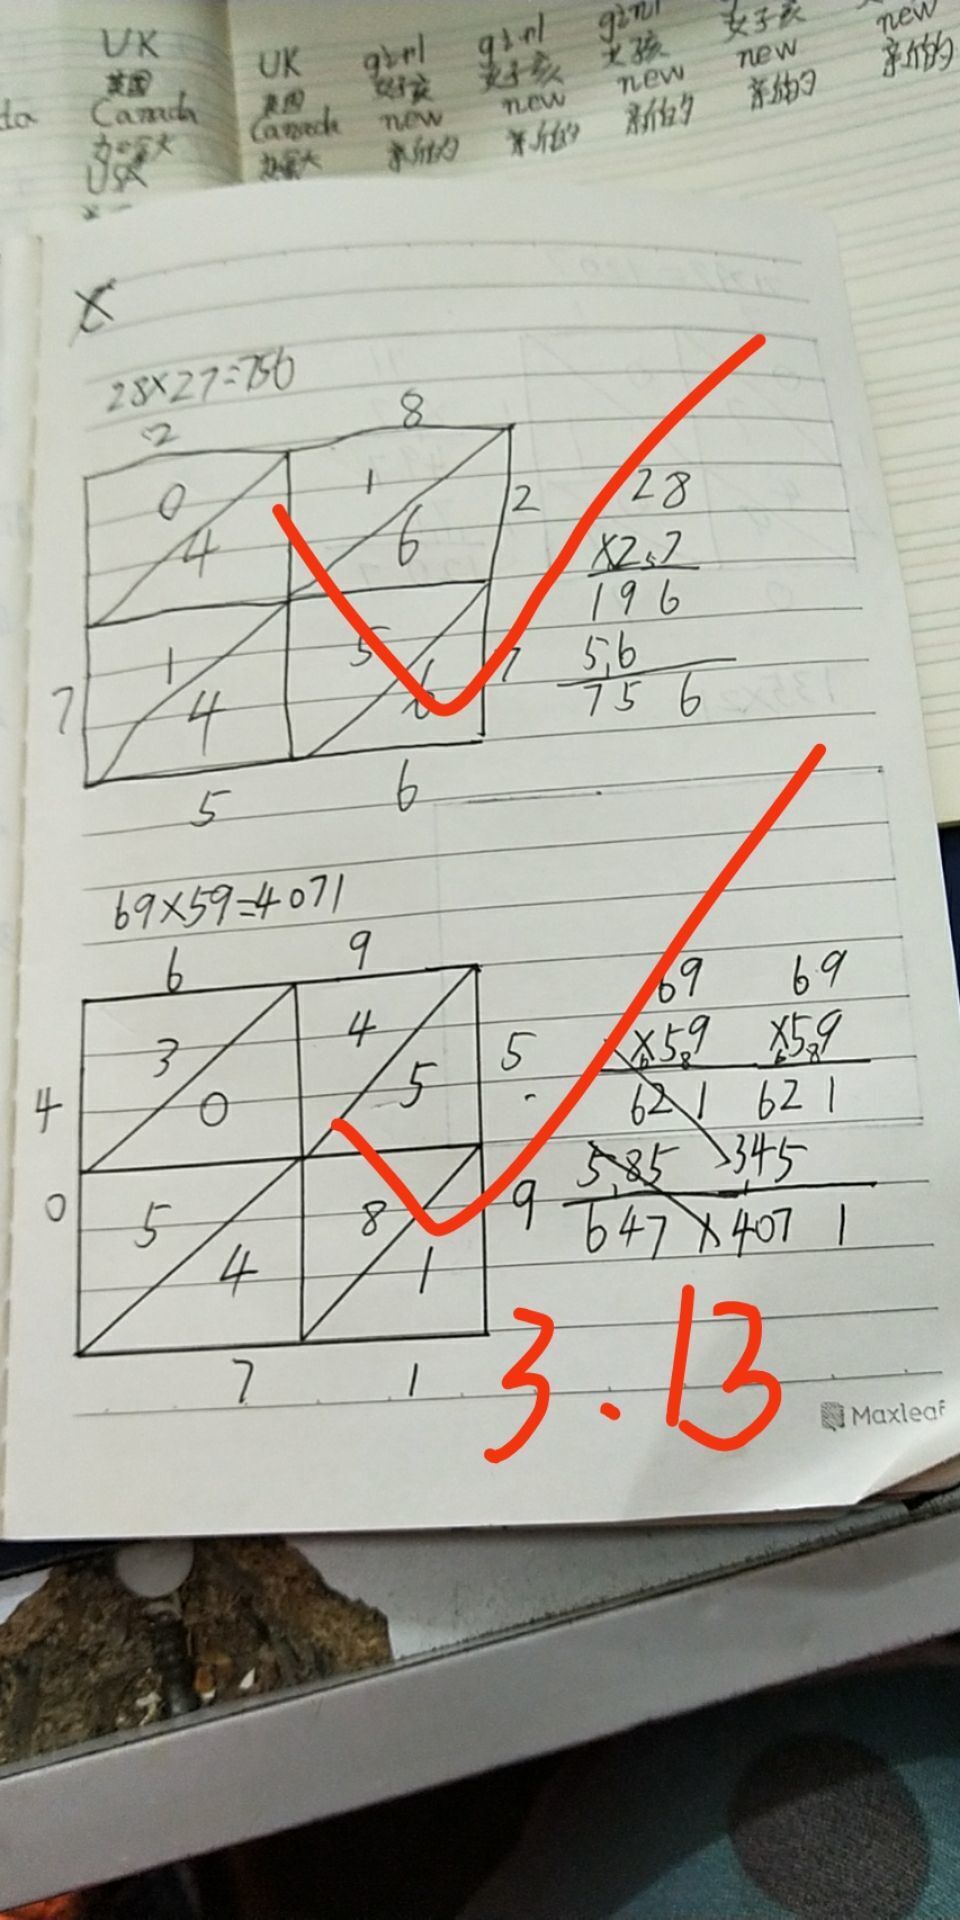 UK UK girl girl girl
英国 英国 女孩 女孩 女孩 女子孩 new
Canada Canada new new new new 新的
加拿大 加拿大 新的 新的 新的 新的
USA
28×27=756
2 8
0 1 2 28
4 6 ×27
196
1 5 7 56
7 4 6 756
5 6
69×59=4071
6 9
3 4 5 69 69
4 0 5 ×59 ×59
621 621
0 5 8 9 585 345
4 1 647 4071
7 1
3.13
Maxleaf